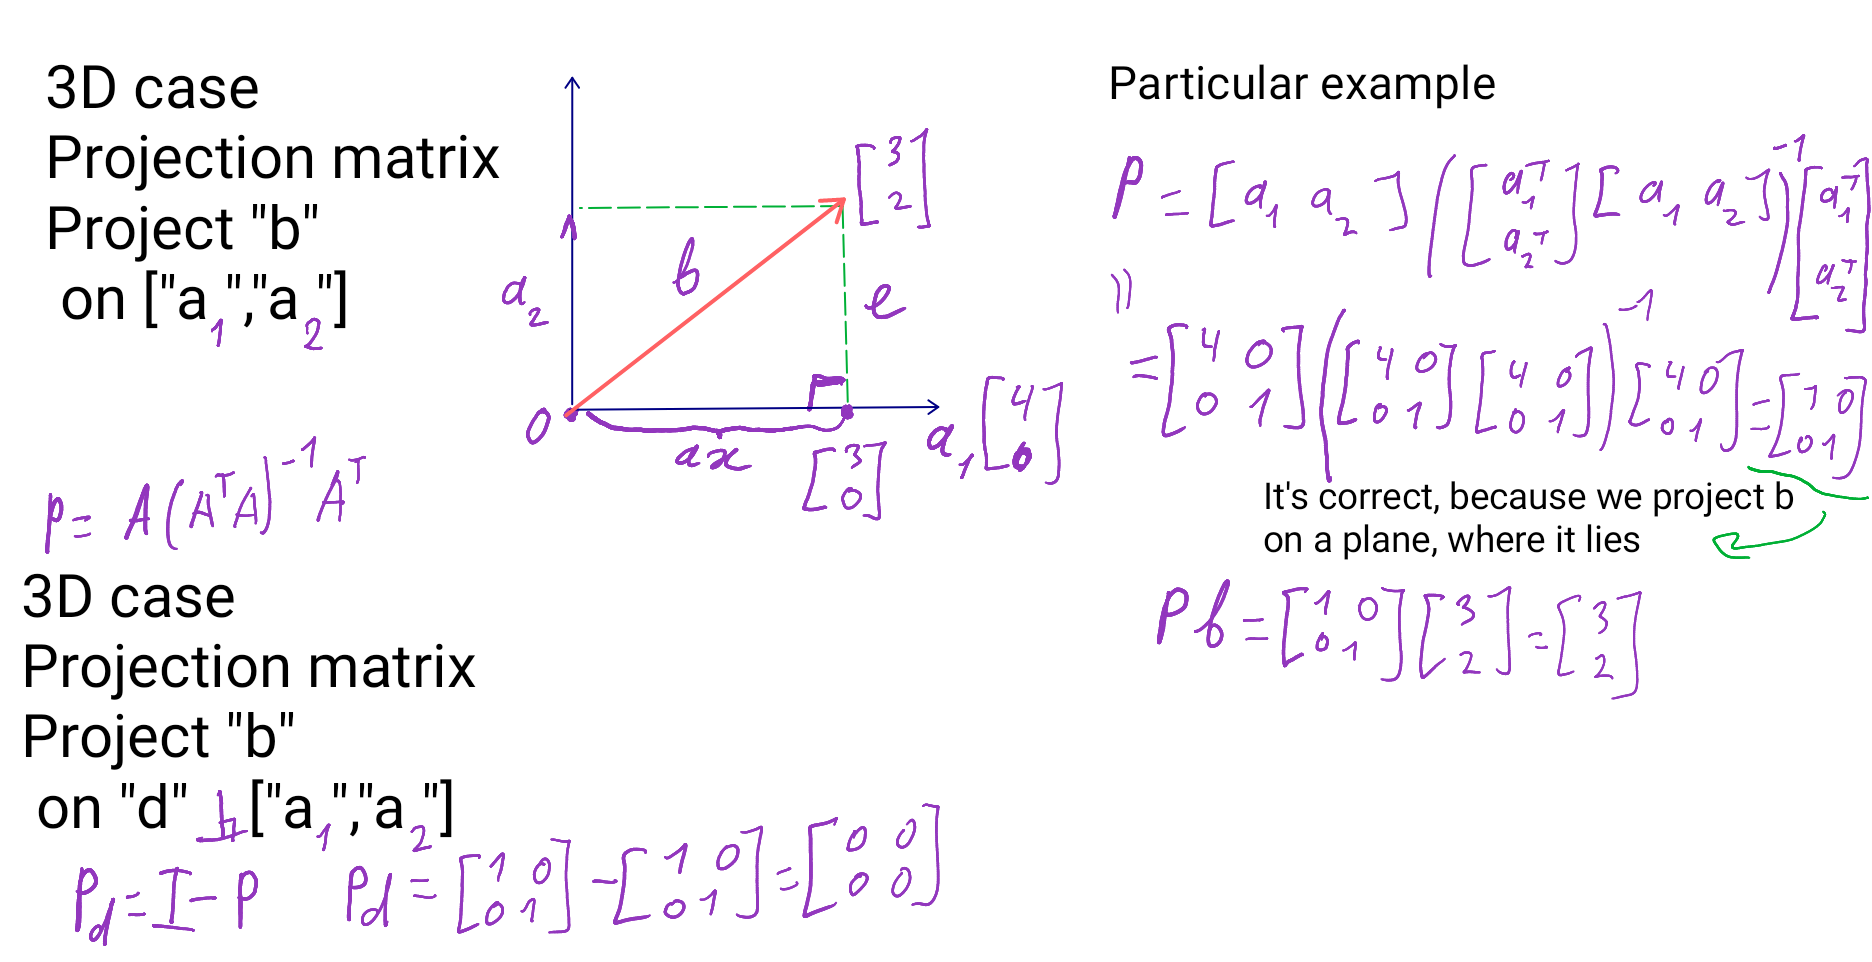 3D case
Projection matrix
Project "b"
on ["a₁","a₂"]
P = A(AᵀA)⁻¹Aᵀ
a₂
b
[3 2]
e
0
ax
[3 0]
a₁ [4 0]
3D case
Projection matrix
Project "b"
on "d" ⊥ ["a₁","a₂"]
P_d = I - P
P_d = [1 0; 0 1] - [1 0; 0 1] = [0 0; 0 0]
Particular example
P = [a₁ a₂] ([a₁ᵀ; a₂ᵀ] [a₁ a₂])⁻¹ [a₁ᵀ; a₂ᵀ]
= [4 0; 0 1] ([4 0; 0 1] [4 0; 0 1])⁻¹ [4 0; 0 1] = [1 0; 0 1]
It's correct, because we project b
on a plane, where it lies
Pb = [1 0; 0 1] [3; 2] = [3; 2]